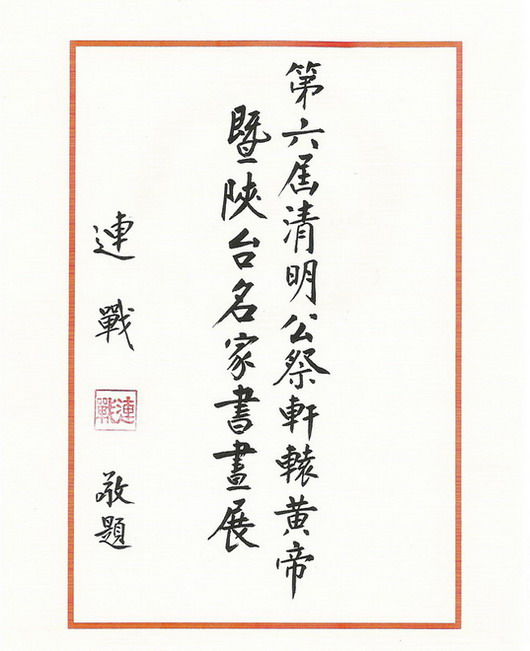 第六屆清明公祭軒轅黃帝
暨陝台名家書畫展
連戰
連戰
敬題